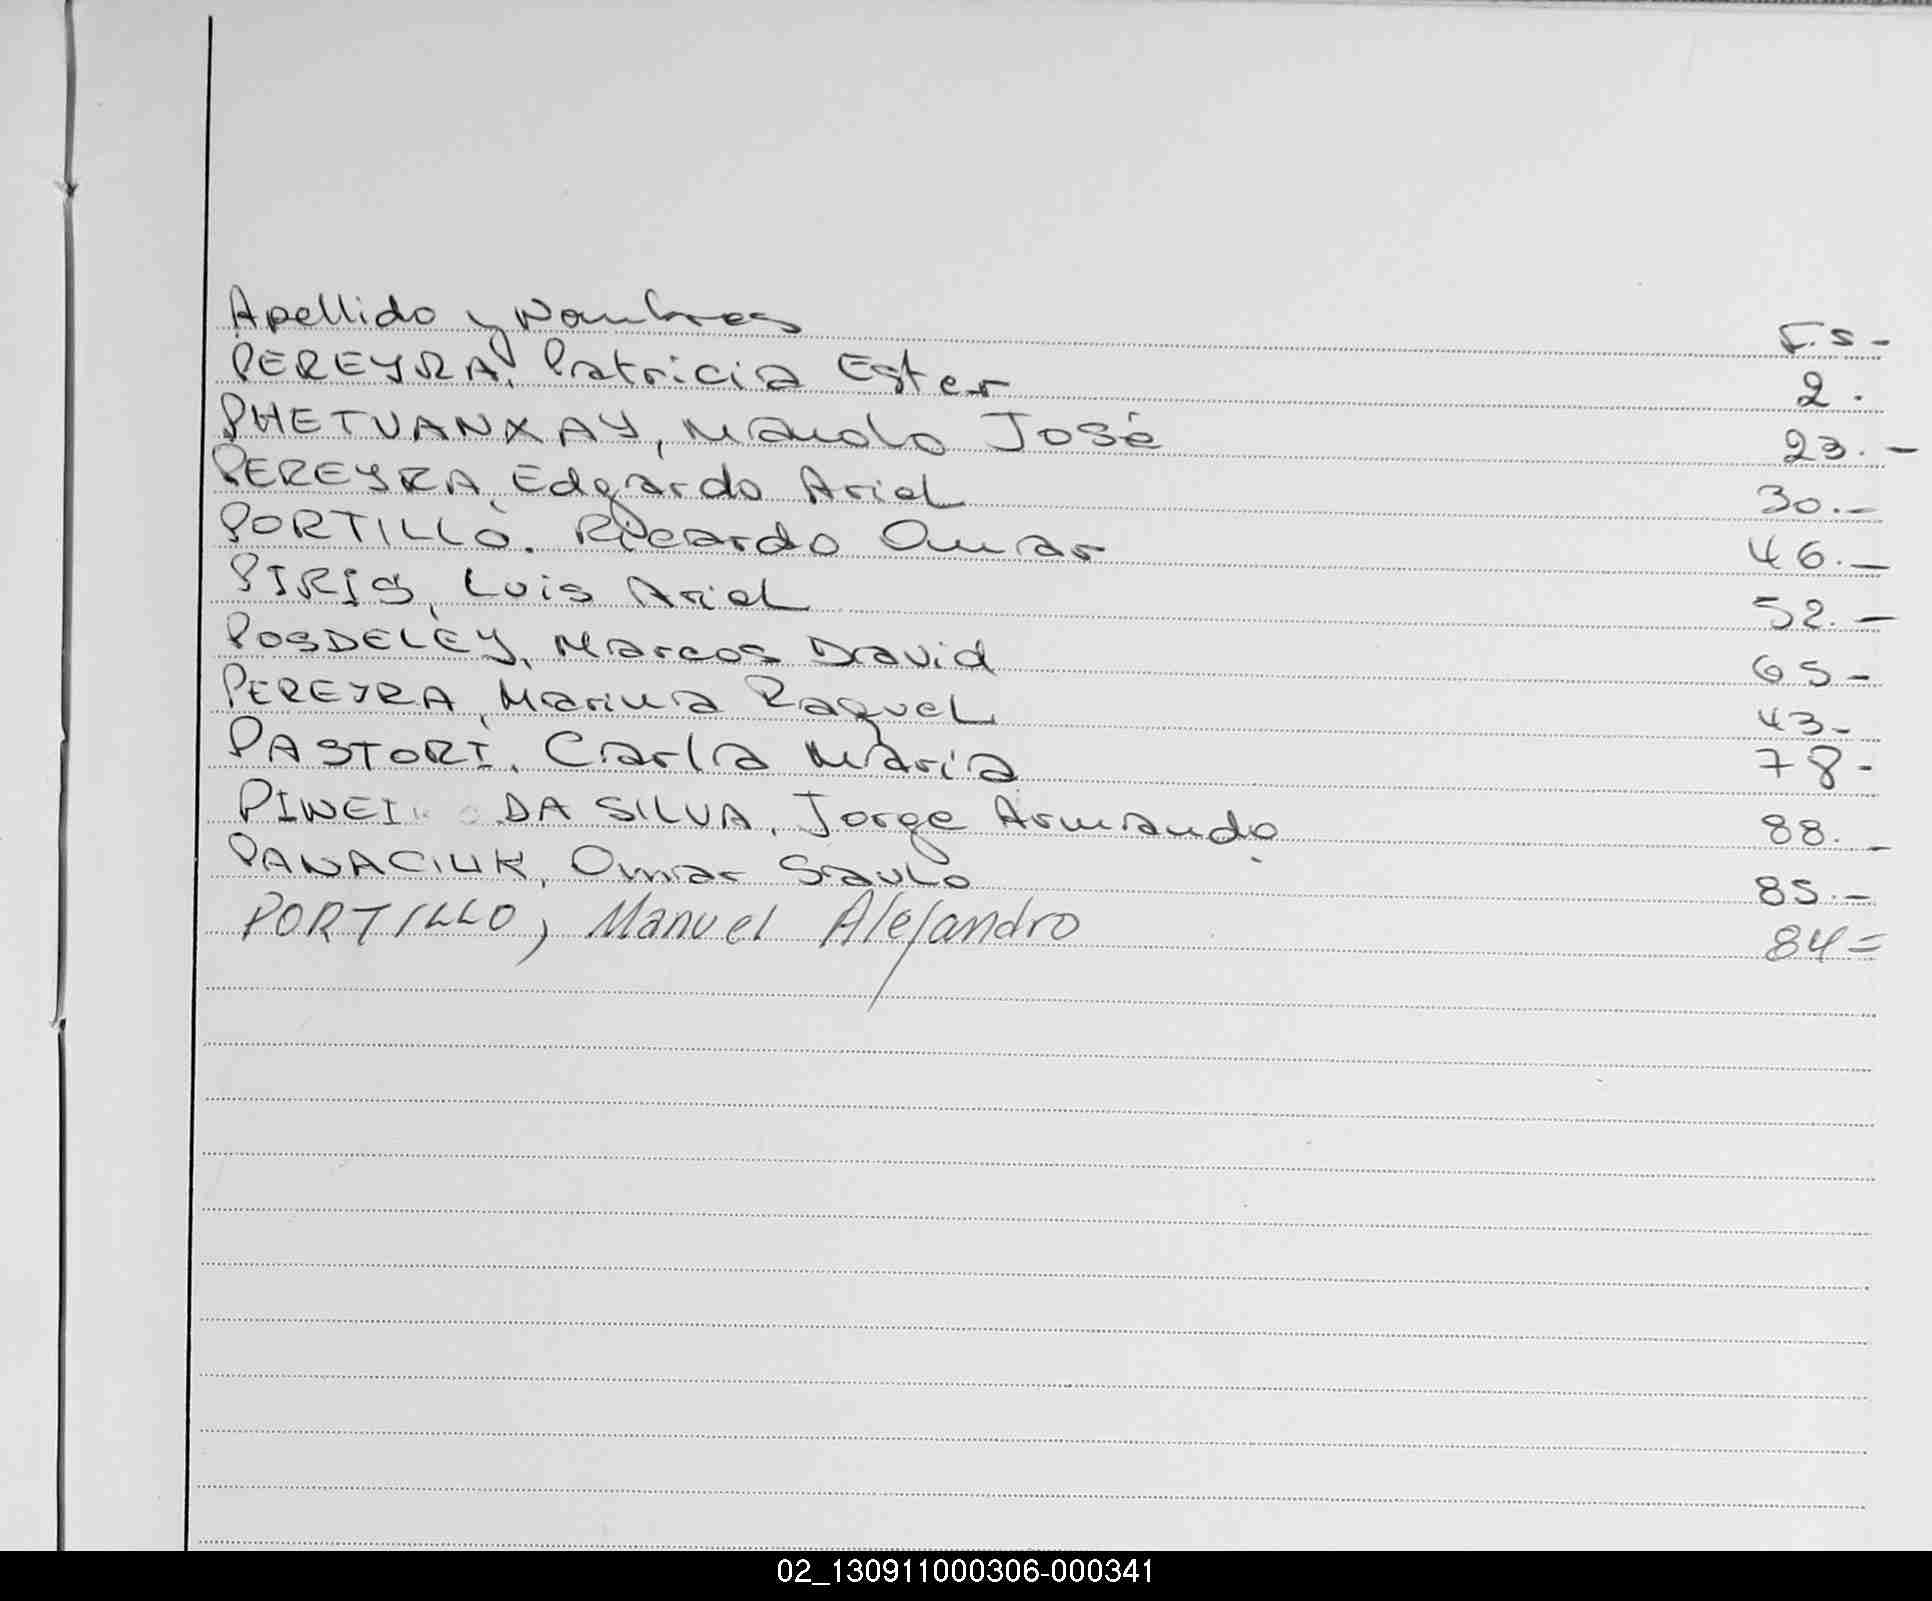 Apellido y Nombres F.S-
PEREYRA, Patricia Ester 2.
PHETVANXAY, Manolo José 23.-
PEREYRA, Edgardo Ariel 30.-
PORTILLO. Ricardo Omar 46.-
PIRIS, Luis Ariel 52.-
POSDELEY, Marcos David 65-
PEREYRA, Marina Raquel 43-
PASTORI, Carla María 78-
DA SILVA, Jorge Armando 88.-
PANACIUK, Omar Saulo 85.-
PORTILLO, Manuel Alejandro 84=
02_130911000306-000341